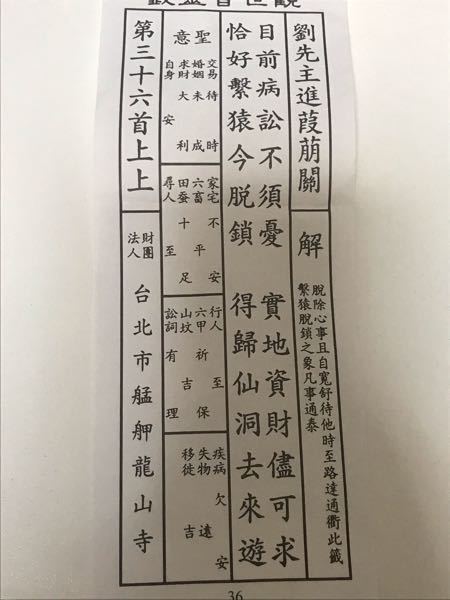 劉先主進葭萠關
解
脫除心事且自寬舒待他時至路達通衢此籤
繫猿脫鎖之象凡事通泰
目前病訟不須憂 實地資財儘可求
恰好繫猿今脫鎖 得歸仙洞去來遊
聖意
交易待時
婚姻未成
求財大利
自身安
家宅不安
六畜平
田蚕十足
尋人至
行人至
六甲祈保
山坟吉
訟詞有理
疾病欠安
失物遠
移徙吉
第三十六首上上
財團
法人
台北市艋舺龍山寺
36